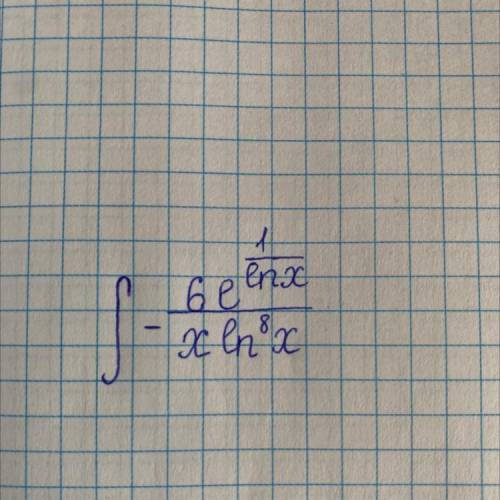 ∫ - \frac{6e^{\frac{1}{ln x}}}{x ln^8 x}